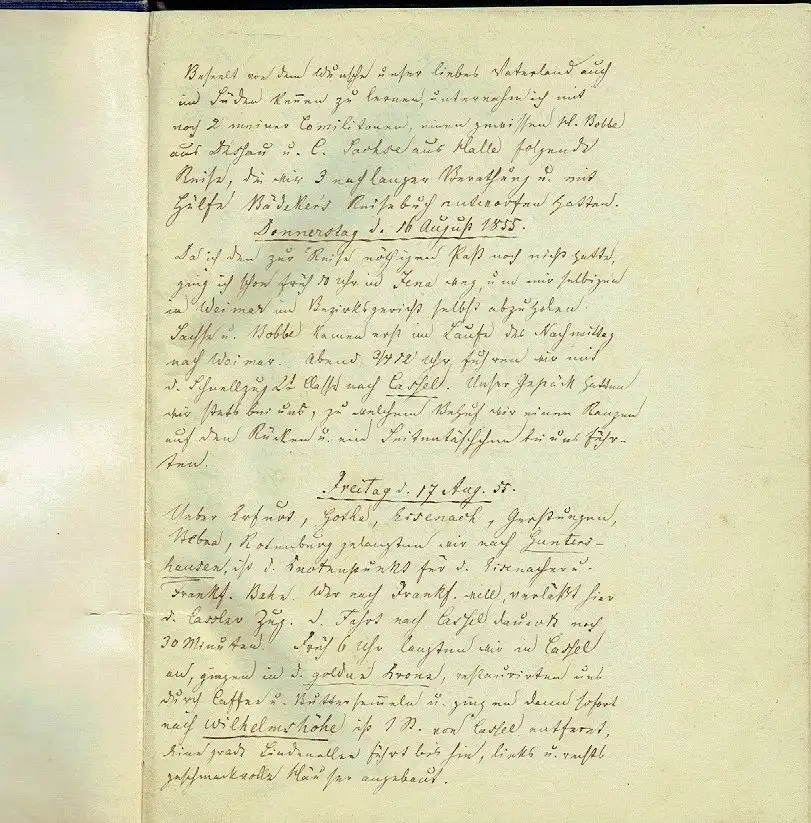 Beseelt von dem Wunsche unser liebes Vaterland auch
im Süden kennen zu lernen, unternahm ich mit
noch 2 meiner Comilitonen, einen gewissen W. Bobbe
aus Dessau u. C. Sachse aus Halle folgende
Reise, die wir 3 nach langer Berathung u. mit
Hülfe Bädekers Reisebuch entworfen hatten.
Donnerstag d. 16 August 1855.
Da ich den zur Reise nöthigen Paß noch nicht hatte,
ging ich schon früh 10 Uhr in Jena weg, um mir selbigen
in Weimar im Bezirksgericht selbst abzuholen.
Sachse u. Bobbe kamen erst im Laufe des Nachmittag
nach Weimar. Abend 3/4 12 Uhr fuhren wir mit
d. Schnellzug 2t Classe nach Cassel. Unser Gepäck hatten
wir stets bei uns, zu welchem Behuf wir einen Ranzen
auf den Rücken u. ein Seitentäschchen bei uns führ-
ten.
Freitag d. 17 Aug. 55.
Ueber Erfurt, Gotha, Eisenach, Gerstungen,
Bebra, Rotenburg gelangten wir nach Gunters-
hausen, ist d. Knotenpunkt für d. Eisenacher u.
Frankf. Bahn. Wer nach Frankf. will, verläßt hier
d. Cassler Zug. d. Fahrt nach Cassel dauert noch
30 Minuten. Früh 6 Uhr langten wir in Cassel
an, gingen in d. goldne Krone, restaurirten uns
durch Caffee u. Buttersemmeln u. gingen dann sofort
nach Wilhelmshöhe ist 1 St. von Cassel entfernt,
Eine grade Lindenallee führt bis hin, links u. rechts
geschmackvolle Häuser angebaut.